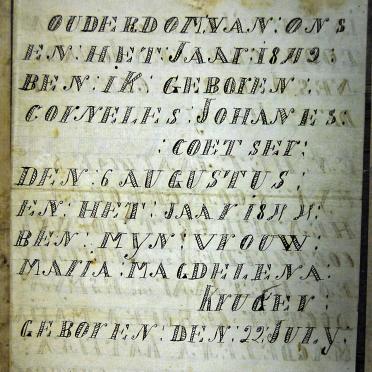 OUDERDOM VAN : ONS
EN : HET : JAAR
BEN : IK GEBOREN :
CORNELES : JOHANES :
: COETSER :
DEN : 6 AUGUSTUS :
EN : HET : JAAR
BEN : MYN : VROUW :
MARIA : MAGDELENA :
KRUGER :
GEBOREN : DEN : 22 JULY :